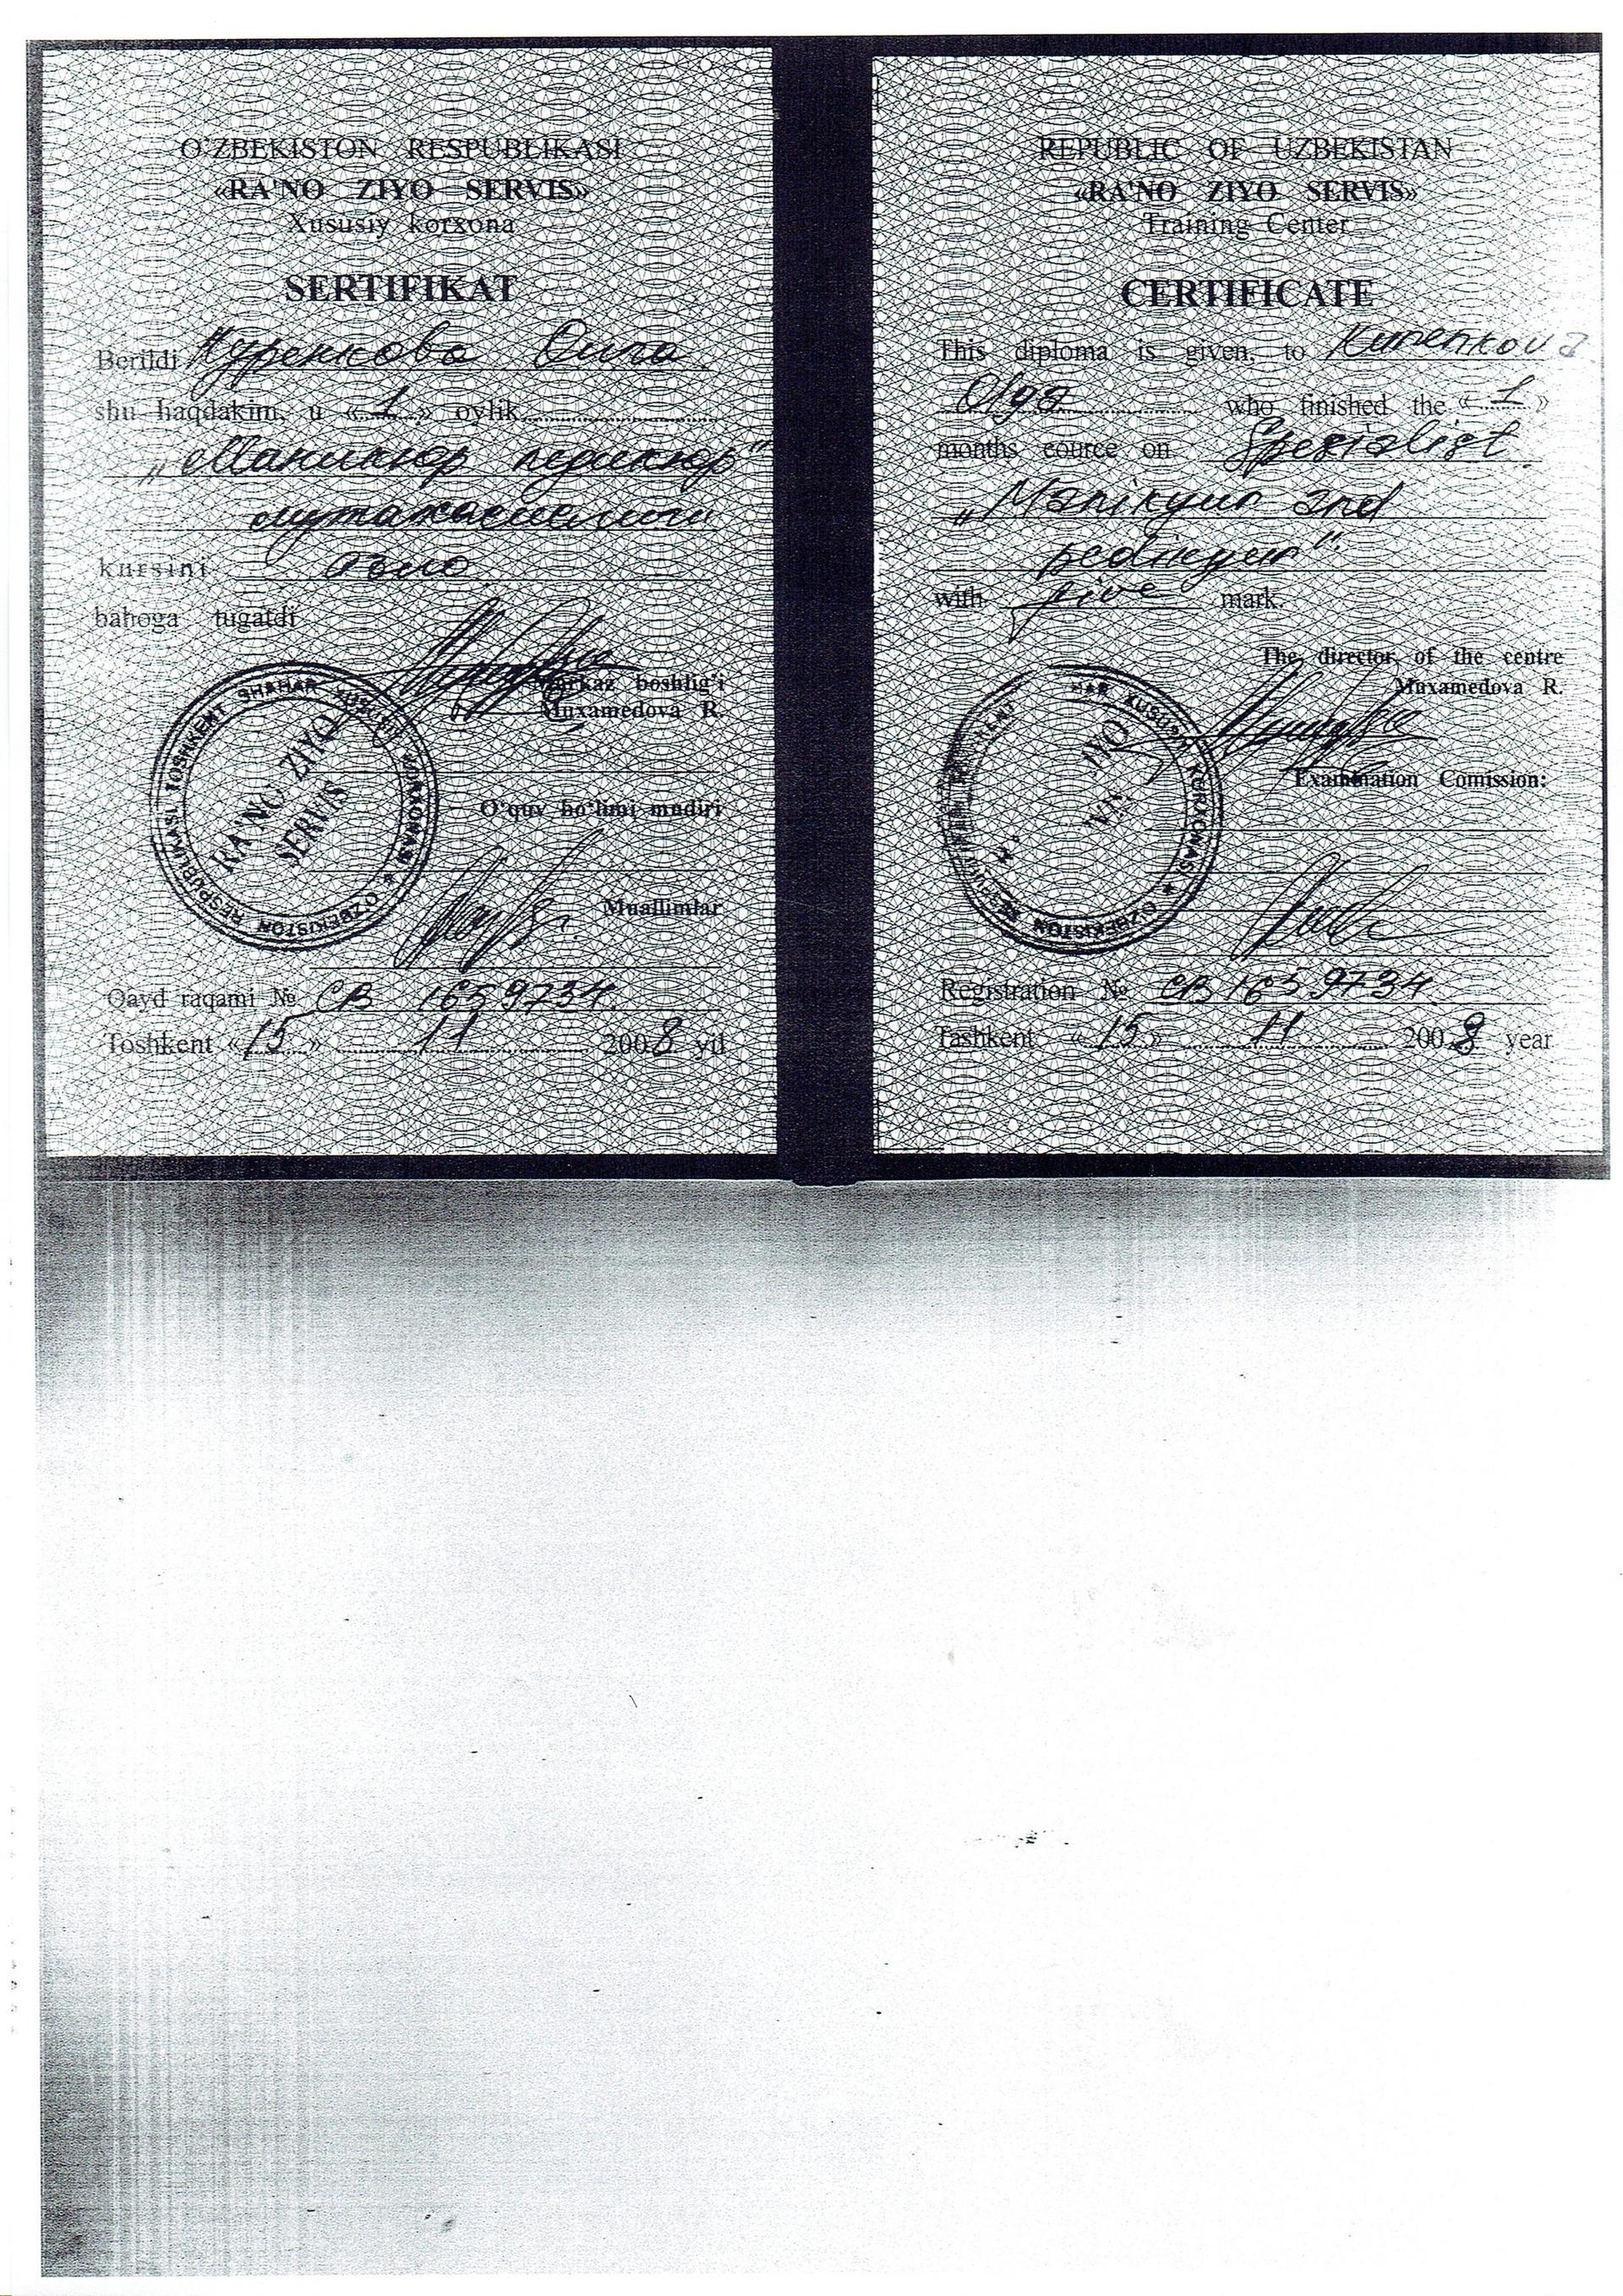 O'ZBEKISTON RESPUBLIKASI
«RA'NO ZIYO SERVIS»
Xususiy korxona
SERTIFIKAT
Berildi Куренкова Олга
shu haqdakim, u «1» oylik
„Маникюр педикюр"
мутахассислиги
kursini аъло
bahoga tugatdi
Markaz boshlig'i
Muxamedova R.
O'quv bo'limi mudiri
Muallimlar
O'ZBEKISTON RESPUBLIKASI TOSHKENT SHAHAR XUSUSIY KORXONASI
RA'NO ZIYO
SERVIS
Qayd raqami № СВ 1659734.
Toshkent «15» 11 2008 yil
REPUBLIC OF UZBEKISTAN
«RA'NO ZIYO SERVIS»
Training Center
CERTIFICATE
This diploma is given, to Kurenkova
Olga who finished the «1»
months cource on Spezialist
„Manikyur and
pedikyur".
with five mark.
The director of the centre
Muxamedova R.
Examination Comission:
Registration № СВ 1659734.
Tashkent «15» 11 2008 year